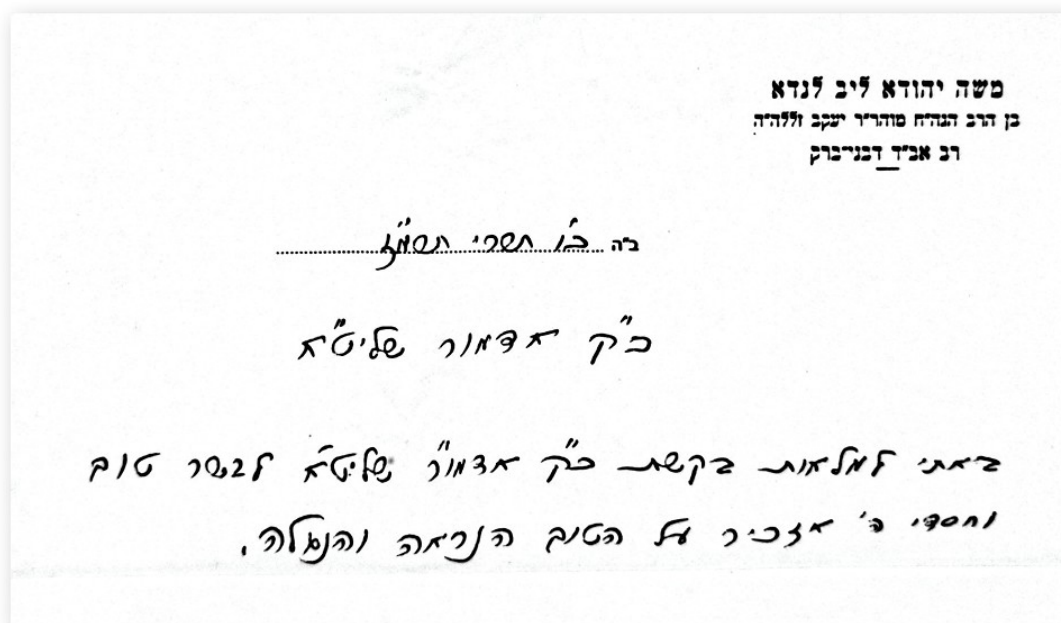 משה יהודא ליב לנדא
בן הרב הגה״ח מוהר״ר יעקב זללה״ה
רב אב״ד דבני־ברק
ב״ה כ״ו תשרי תשמ״ז
כ״ק אדמור שליט״א
באתי למלאות בקשת כ״ק אדמו״ר שליט״א לבשר טוב
וחסדי ה׳ אזכיר על הטוב הנראה והנגלה.